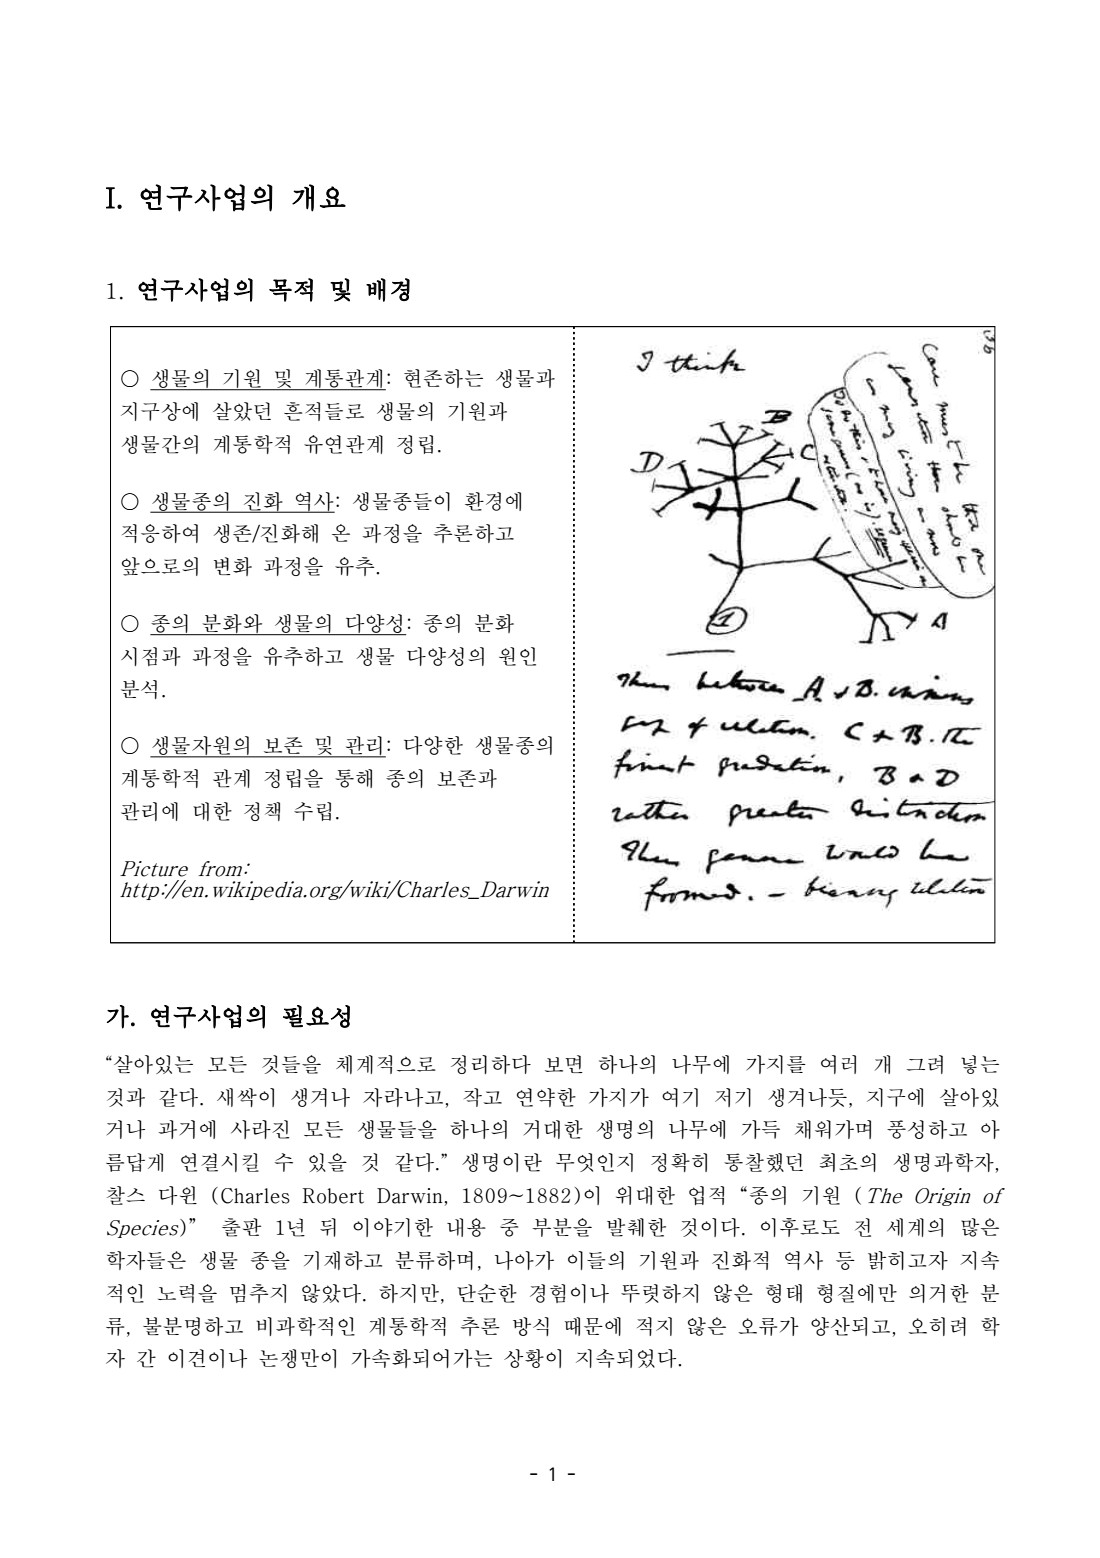 I. 연구사업의 개요
1. 연구사업의 목적 및 배경
○ 생물의 기원 및 계통관계: 현존하는 생물과
지구상에 살았던 흔적들로 생물의 기원과
생물간의 계통학적 유연관계 정립.
○ 생물종의 진화 역사: 생물종들이 환경에
적응하여 생존/진화해 온 과정을 추론하고
앞으로의 변화 과정을 유추.
○ 종의 분화와 생물의 다양성: 종의 분화
시점과 과정을 유추하고 생물 다양성의 원인
분석.
○ 생물자원의 보존 및 관리: 다양한 생물종의
계통학적 관계 정립을 통해 종의 보존과
관리에 대한 정책 수립.
Picture from:
http://en.wikipedia.org/wiki/Charles_Darwin
I think
B
D
C
1
A
Thus between A & B. immens
gap of relation. C & B. the
finest gradation, B & D
rather greater distinction
Thus genera would be
formed. - bienary relation
가. 연구사업의 필요성
“살아있는 모든 것들을 체계적으로 정리하다 보면 하나의 나무에 가지를 여러 개 그려 넣는
것과 같다. 새싹이 생겨나 자라나고, 작고 연약한 가지가 여기 저기 생겨나듯, 지구에 살아있
거나 과거에 사라진 모든 생물들을 하나의 거대한 생명의 나무에 가득 채워가며 풍성하고 아
름답게 연결시킬 수 있을 것 같다.” 생명이란 무엇인지 정확히 통찰했던 최초의 생명과학자,
찰스 다윈 (Charles Robert Darwin, 1809~1882)이 위대한 업적 “종의 기원 (The Origin of
Species)” 출판 1년 뒤 이야기한 내용 중 부분을 발췌한 것이다. 이후로도 전 세계의 많은
학자들은 생물 종을 기재하고 분류하며, 나아가 이들의 기원과 진화적 역사 등 밝히고자 지속
적인 노력을 멈추지 않았다. 하지만, 단순한 경험이나 뚜렷하지 않은 형태 형질에만 의거한 분
류, 불분명하고 비과학적인 계통학적 추론 방식 때문에 적지 않은 오류가 양산되고, 오히려 학
자 간 이견이나 논쟁만이 가속화되어가는 상황이 지속되었다.
- 1 -